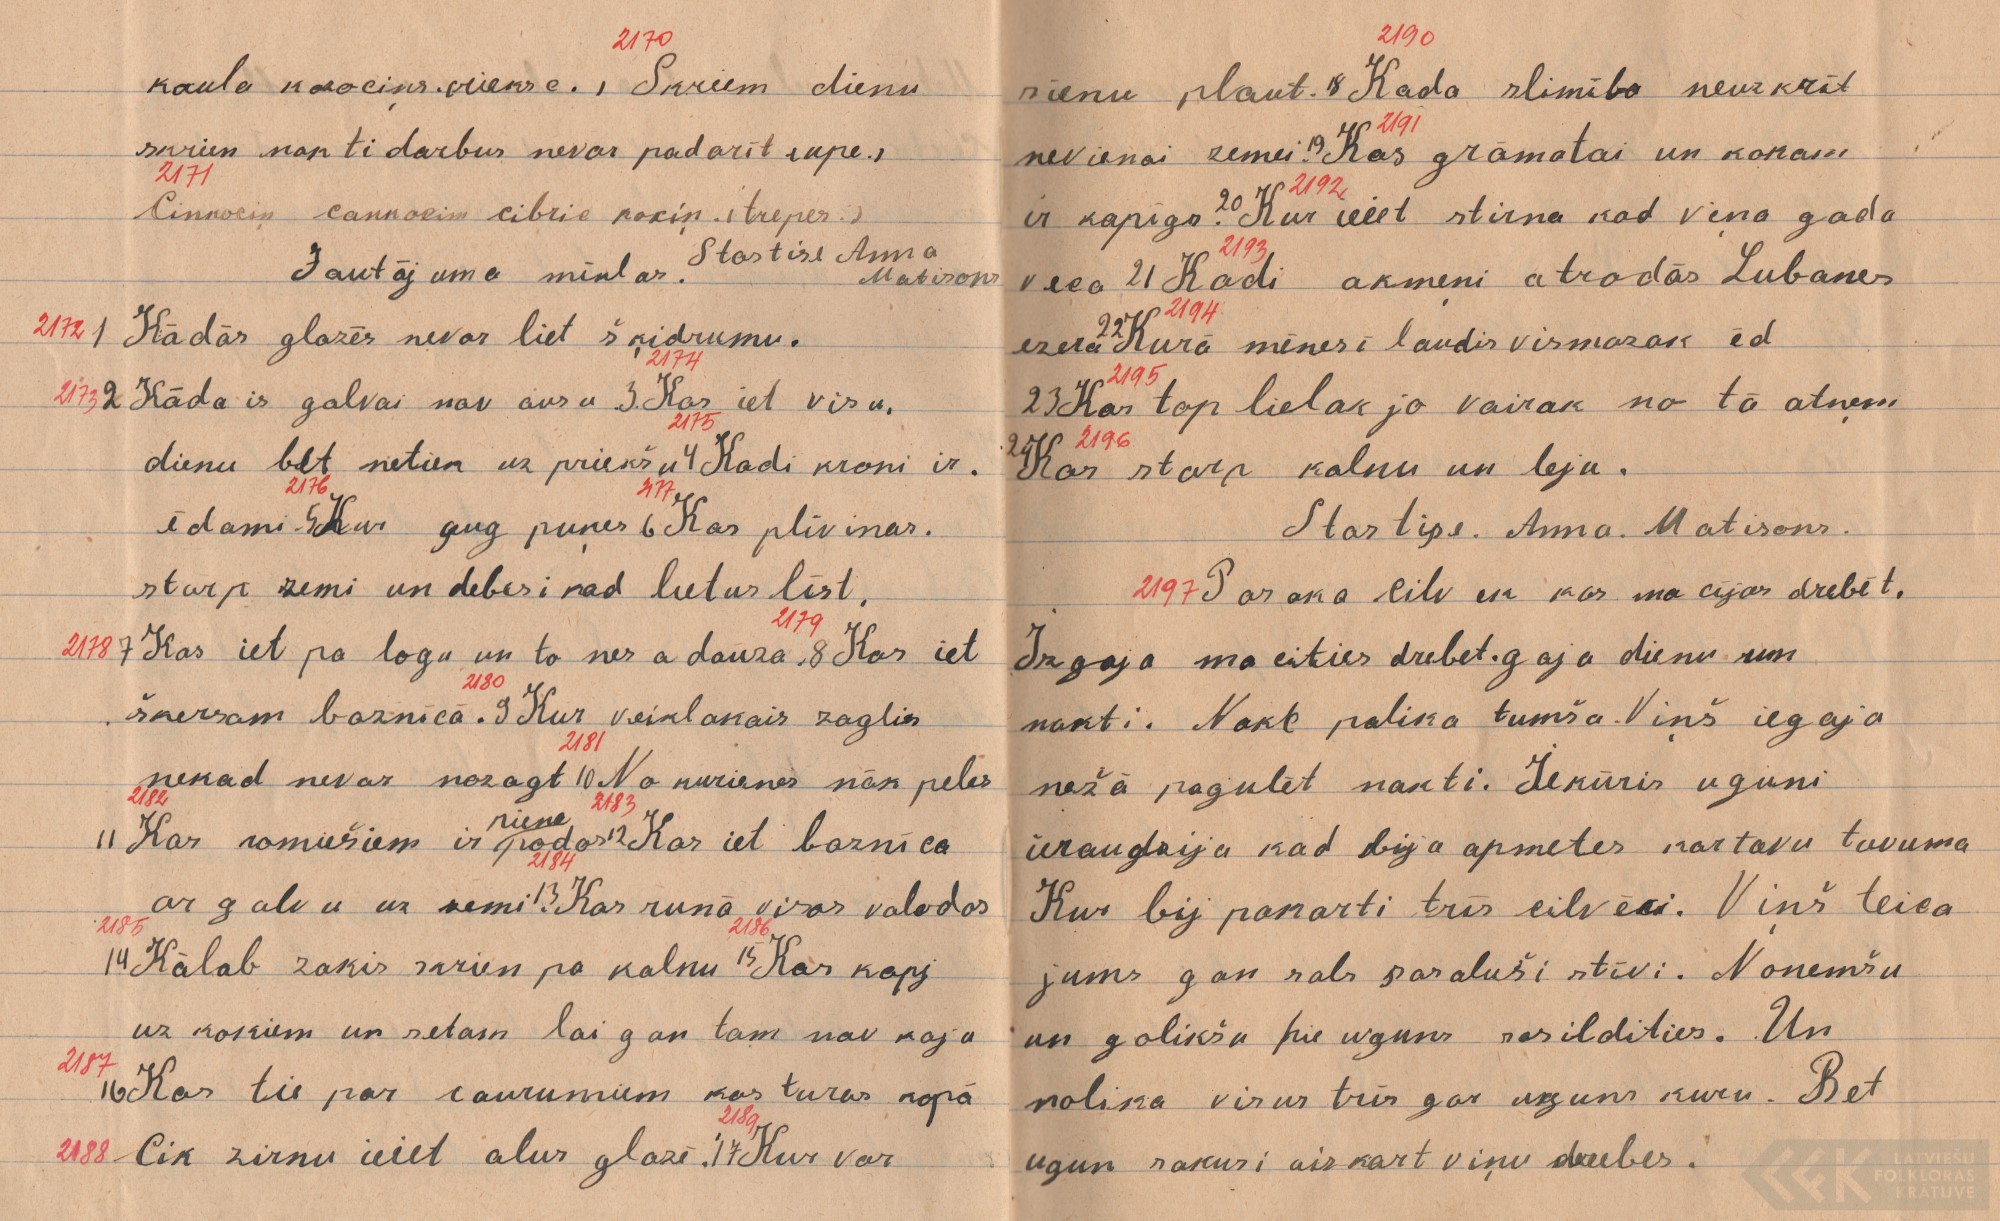 2170
kaula kazociņs.priekse. , Skriem dienu
skrien nakti darbus nevar padarīt (upe.,
2171
Cinkociņ cankociņ cibrie kokiņ. (trepes.)
Jautājuma mīklas. Stastise Anna
Matisons
2172 1 Kādās glazēs nevar liet šķidrumu.
2174
2173 2 Kāda is galvai nav ausu 3. Kas iet visu.
2175
dienu bet netiek uz priekšu 4 Kadi kroni ir.
2176 2177
ēdami. 5 Kur aug puņes 6 Kas plīvinas.
starp zemi un debesi kad lietus līst.
2179
2178 7 Kas iet pa logu un to nesadauza. 8 Kas iet
2180
škersam baznīcā. 9 Kur veiklakais zaglis
2181
nekad nevar nozagt 10 No kurienes nāk peles
2182 2183
riene
11 Kas romiešiem ir podas 12 Kas iet baznīca
2184
ar galvu uz zemi 13. Kas runā visas valodas
2185 2186
14 Kālab zakis skrien pa kalnu 15 Kas kapj
uz kokiem un setam lai gan tam nav kaju
2187
16 Kas tie par caurumiem kas turas kopā
2189
2188 Cik zirnu ieiet alus glazē. 17 Kur var
2190
sienu plaut. 18 Kada slimība neuzkrīt
2191
nevienai zemei. 19 Kas grāmatai un kokam
2192
ir kapīgs. 20 Kur ieiet stirna kad viņa gada
2193
veca 21 Kadi akmeņi atrodās Lubanes
2194
ezerā 22 Kurā mēnesī laudis vismazak ēd
2195
23 Kas top lielak jo vairak no tā atņem
2196
24 Kas starp kalnu un leju.
Stastise. Anna. Matisons.
2197 Pasaka Cilvek kas macijas drebēt.
Izgaja macities drebet. gaja dienu un
nakti. Nakt palika tumša. Viņš iegaja
nežā pagulēt nakti. Iekūris uguni
ieraudzija kad bija apmetes kartavu tuvuma
Kur bij pakarti trīs cilvēki. Viņš teica
jums gan sals sasaluši stīvi. Nonemšu
un golikšu pie uguns sasildities. Un
nolika visus trīs gar uguns kuru. Bet
ugun sakusi aizkart viņu drebes.
LATVIEŠU
FOLKLORAS
KRĀTUVE